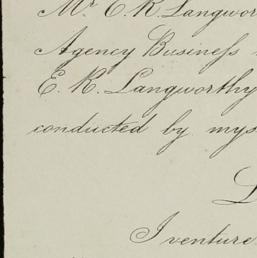 Mr E. R. Langwor
Agency Busineſs
E. R. Langworthy
conducted by mys
L
I venture